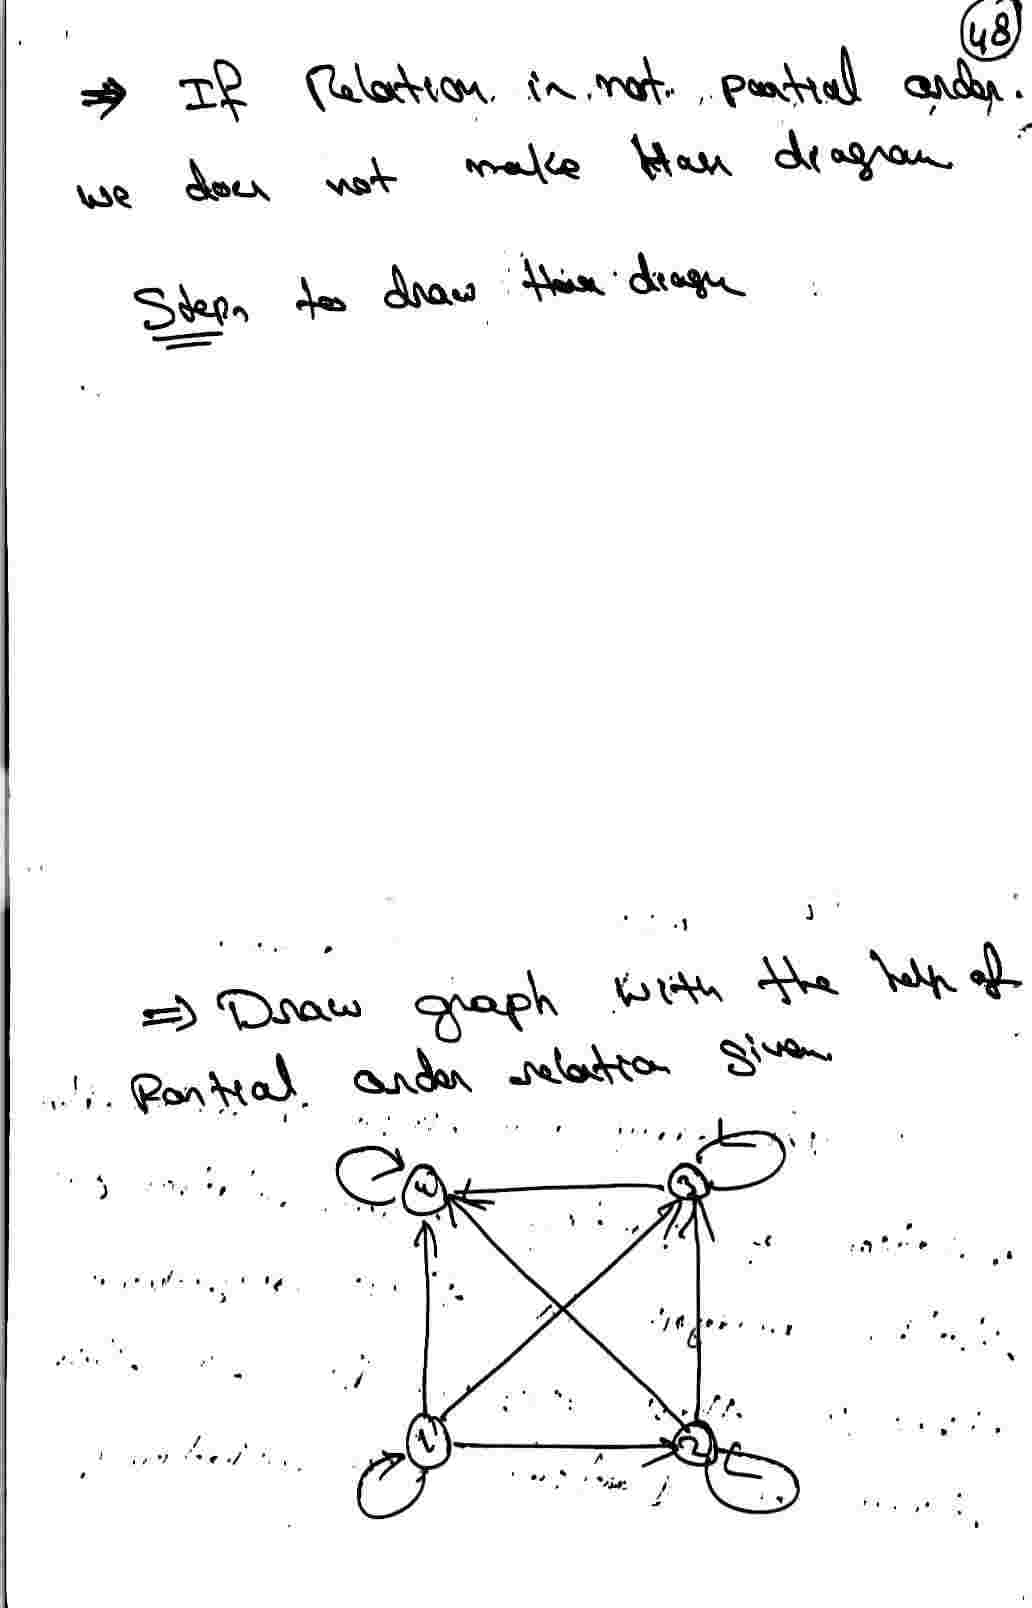 48
⇒ If Relation is not partial order.
we does not make Hass diagram
Steps to draw
⇒ Draw graph with the help of
Partial order relation given
4 3
1 2